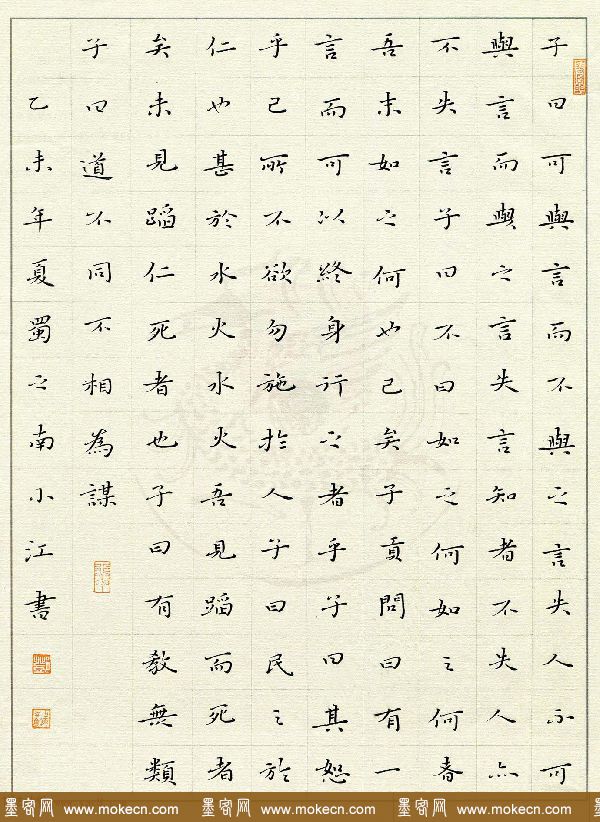 子曰可與言而不與之言失人不可
與言而與之言失言知者不失人亦
不失言子曰不曰如之何如之何者
吾末如之何也已矣子貢問曰有一
言而可以終身行之者乎子曰其恕
乎己所不欲勿施於人子曰民之於
仁也甚於水火水火吾見蹈而死者
矣未見蹈仁死者也子曰有教無類
子曰道不同不相為謀
乙未年夏蜀之南小江書
墨客网 www.mokecn.com 墨客网 www.mokecn.com 墨客网 www.mokecn.com 墨客网